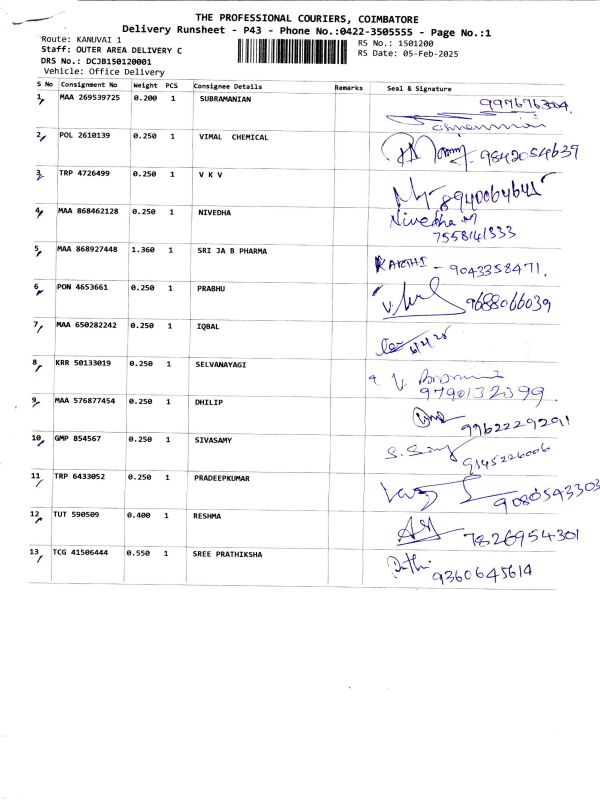 THE PROFESSIONAL COURIERS, COIMBATORE
Delivery Runsheet - P43 - Phone No.:0422-3505555 - Page No.:1
Route: KANUVAI 1
RS No.: 1501200
Staff: OUTER AREA DELIVERY C
RS Date: 05-Feb-2025
DRS No.: DCJB150120001
Vehicle: Office Delivery
S No Consignment No Weight PCS Consignee Details Remarks Seal & Signature
1 MAA 269539725 0.200 1 SUBRAMANIAN
2 POL 2610139 0.250 1 VIMAL CHEMICAL 9842054639
3 TRP 4726499 0.250 1 V K V
4 MAA 868462128 0.250 1 NIVEDHA Nivedha M
7558141333
5 MAA 868927448 1.360 1 SRI JA B PHARMA KARTHI - 9043358471.
6 PON 4653661 0.250 1 PRABHU 9688066039
7 MAA 650282242 0.250 1 IQBAL
8 KRR 50133019 0.250 1 SELVANAYAGI
9790132399
9 MAA 576877454 0.250 1 DHILIP 9962229291
10 GMP 854567 0.250 1 SIVASAMY
11 TRP 6433052 0.250 1 PRADEEPKUMAR 9080543303
12 TUT 590509 0.400 1 RESHMA 7826954301
13 TCG 41506444 0.550 1 SREE PRATHIKSHA 9360645614